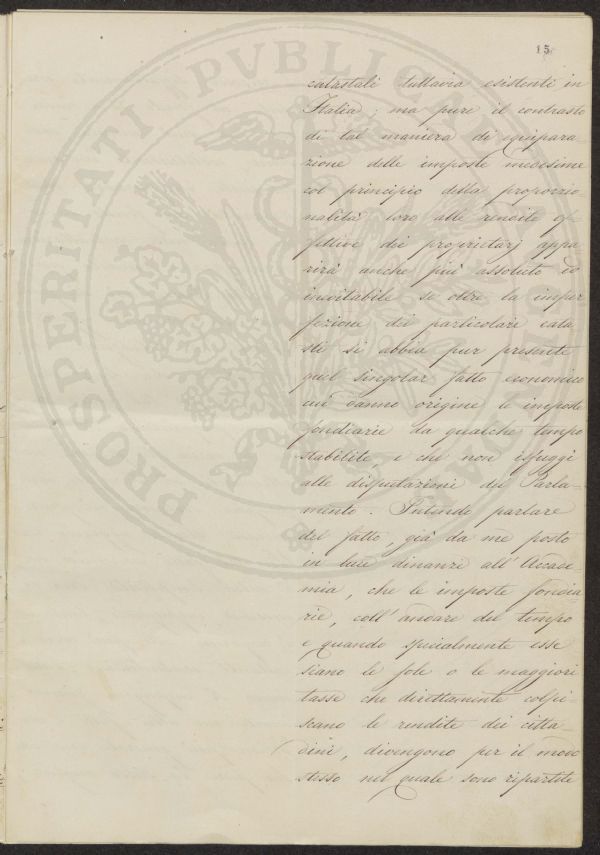 15
catastali tuttavia esistenti in
Italia; ma pure il contrasto
di tal maniera di
zione delle imposte medesime
col principio della proporzio-
nalità loro alle rendite ef-
fettive dei proprietarj appa-
rirà anche più assoluto ed
inevitabile se oltre la imper
fezione dei particolari cata
sti si abbia pur presente
quel singolar fatto economico
cui danno origine le imposte
fondiarie da qualche tempo
stabilite, e che non isfuggì
alle disputazioni del Parla-
mento. Intendo parlare
del fatto, già da me posto
in luce dinanzi all'Accade-
mia, che le imposte fondia-
rie, coll'andare del tempo
e quando specialmente esse
siano le sole o le maggiori
tasse che direttamente colpi-
scano le rendite dei citta-
dini, divengono per il modo
stesso nel quale sono ripartite
PROSPERITATI PVBLICAE